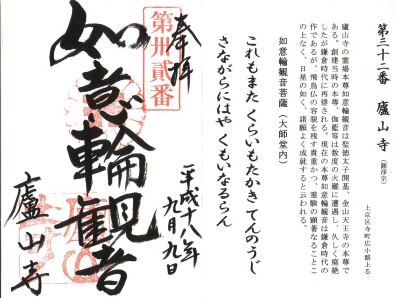 第三十二番 廬山寺(圓浄宗)
上京区寺町広小路上る
廬山寺の霊場本尊如意輪観音は聖徳太子開基、金山天王寺の本尊で
ある。創建当時の本尊、伽藍等は数度の火難に遭遇し、久しく廃絶
したが鎌倉時代に再建される。現在の本尊如意輪観音は鎌倉時代の
作であるが、飛鳥仏の容貌を残す貴重かつ、霊験の顕著なること
の上なく、日星の如く、諸願よく成就すると云われる。
如意輪観音菩薩(大師堂内)
これもまた くらいもたかき てんのうじ
さながらにはや くもいなるらん
奉拝
平成十八年
九月九日
第卅貳番
如意輪観音
廬山寺